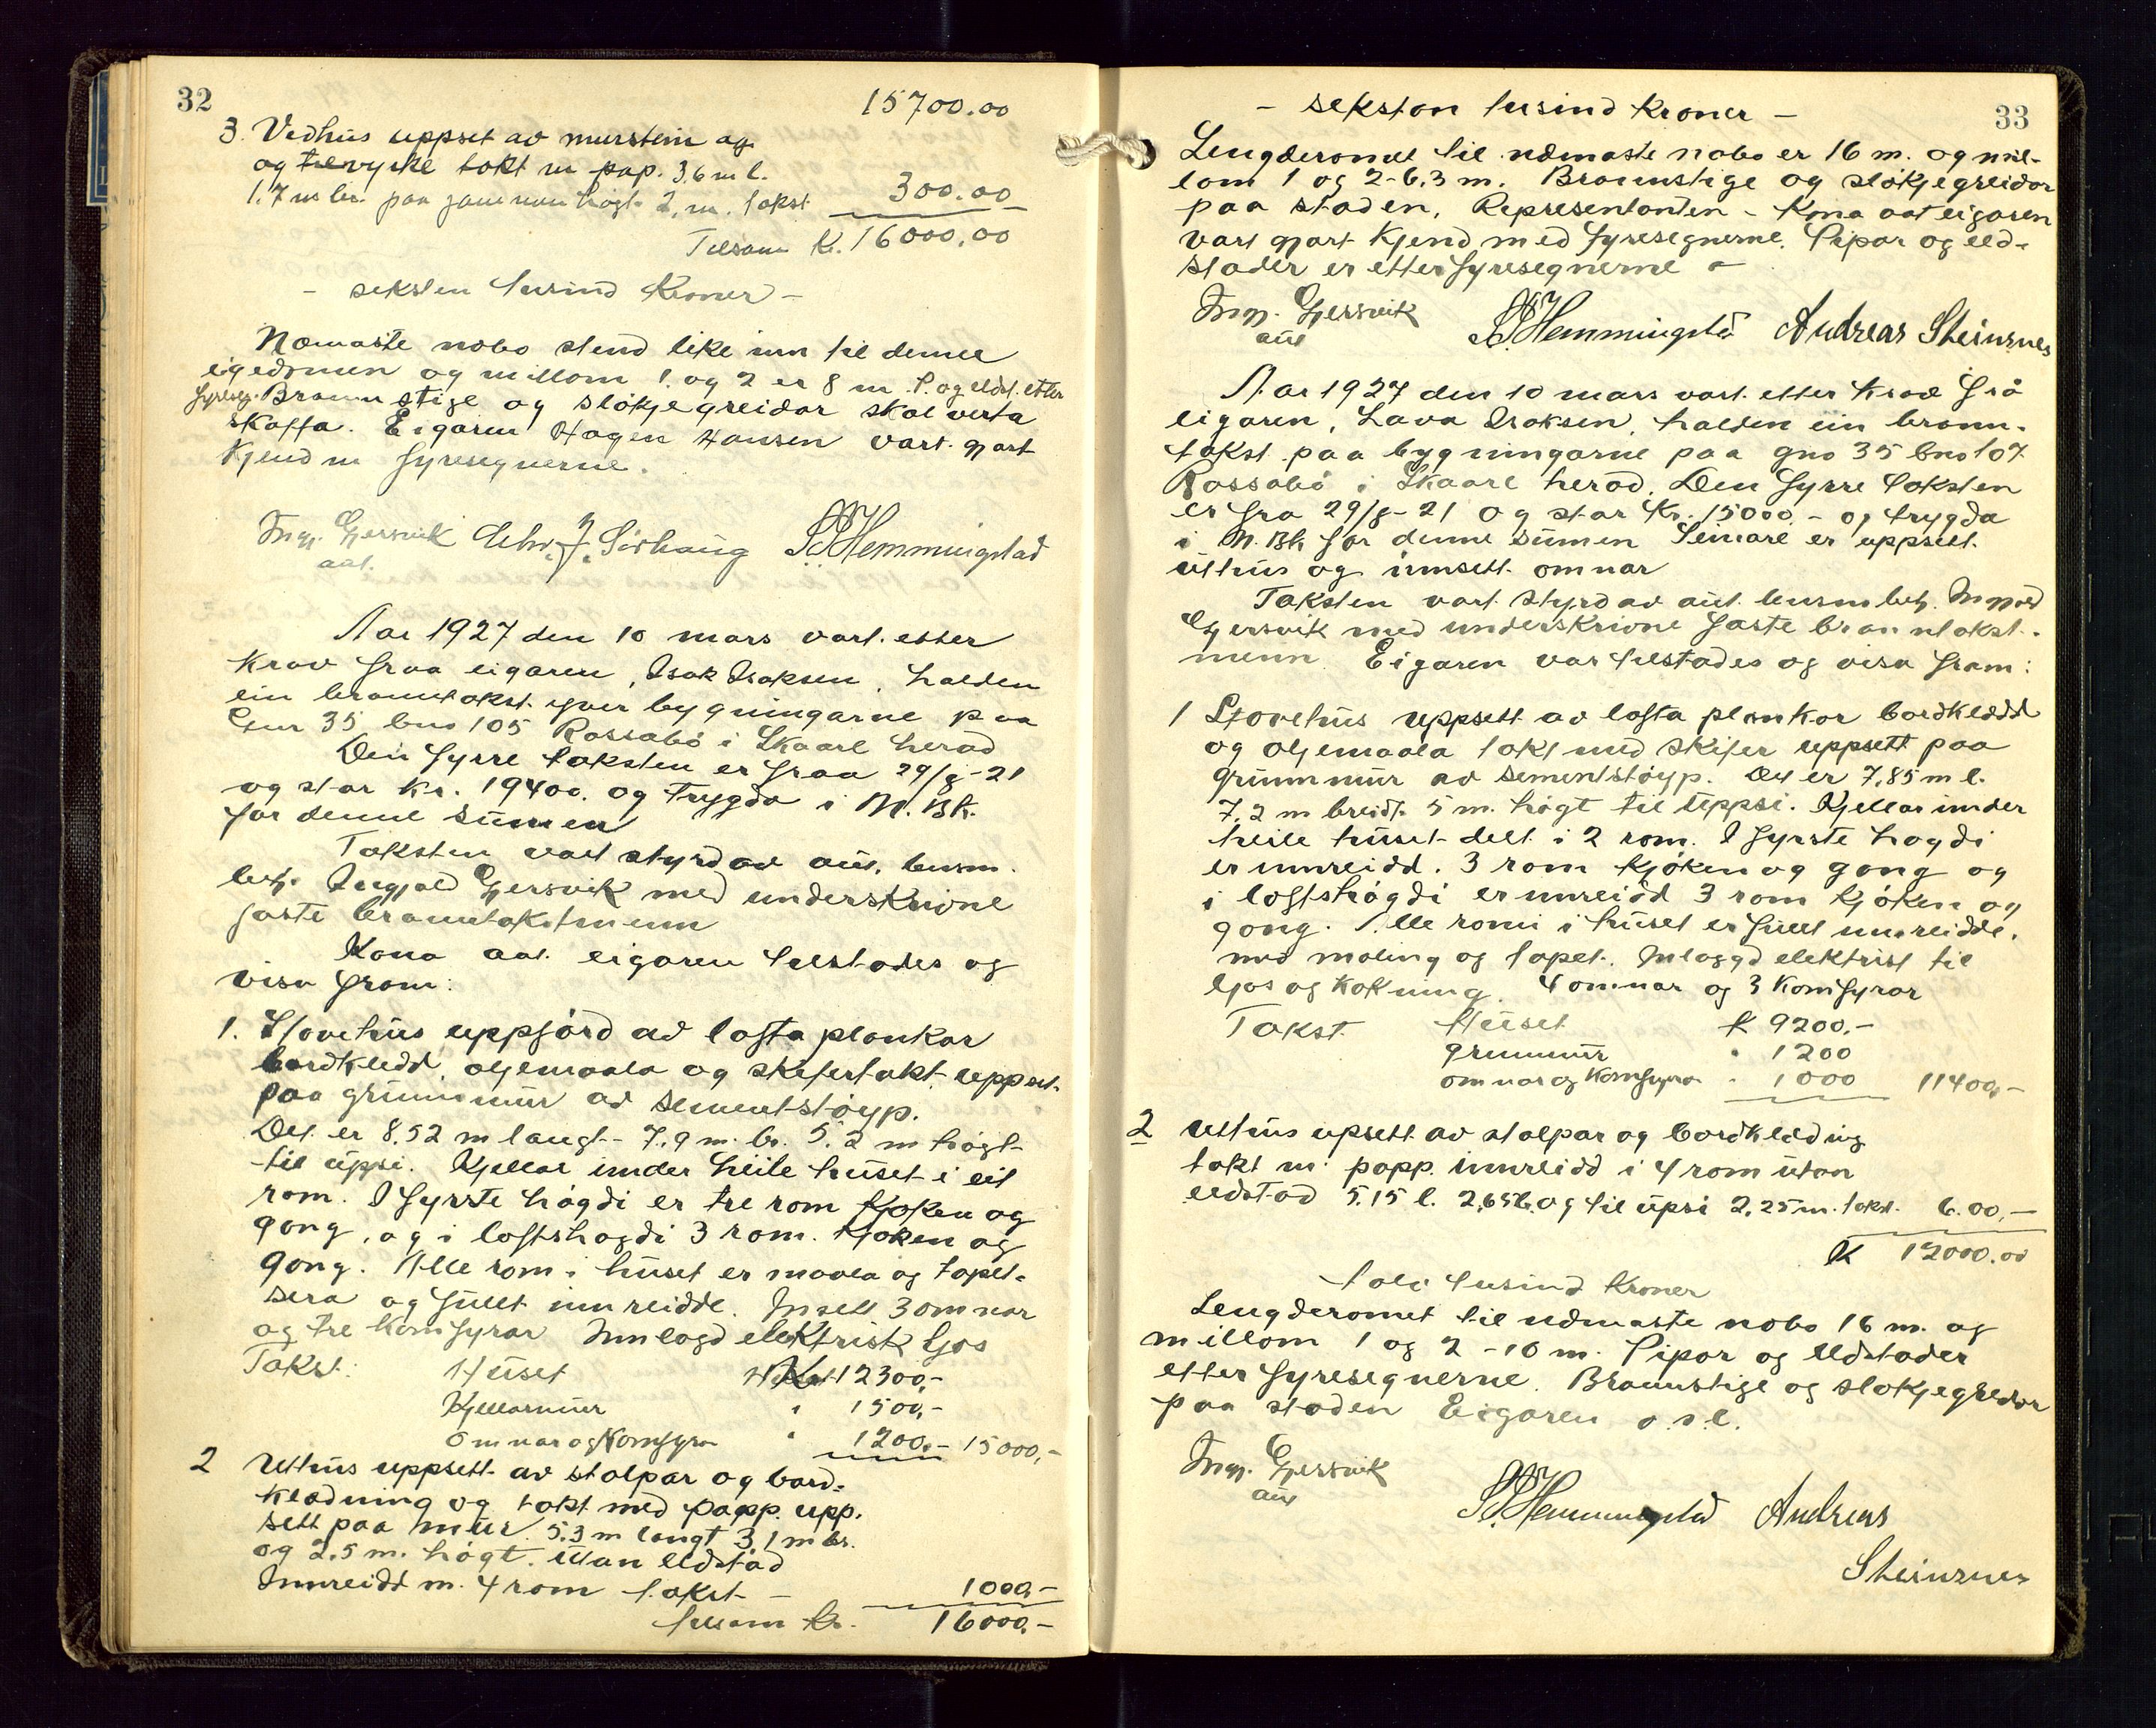 32
15700.00
3. Vedhus uppset av murstein og
og trevyrke tekt m pap. 3.6 m l.
1.7 m br. paa jamnon högt 2, m. takst 300.00
Tilsam K. 16000.00
- seksten tusind Kroner -
Næmaste nabo stend like inn til denne
eigedomen og millom 1. og 2 er 8 m. P. og eldst. etter
fyreseg. Brannstige og slökjegreidor skal verta
skaffa. Eigaren Hagen Hansen vart gjort
Kjend m fyresegnerne.
Ing. Gjersvik Chr. J. Sörhaug S. S. Hemmingstad
aut.
Aar 1927 den 10 mars vart etter
Krav fraa eigaren, Isak Isaksen, halden
ein branntakst yver bygningarne paa
Gnr 35 bno 105 Rossabö i Skaare herad
Den fyrre taksten er fraa 29/8-21
og star kr. 19400. og trygda i N. Bk.
for denne sumen
Taksten vart styrd av aut. lensm.
betj. Ingjald Gjersvik med underskrivne
faste branntakstmenn
Kona aat eigaren tilstades og
viser fram:
1. Stovehus uppförd av lafta plankar
bordkledd, oljemaala og skifertakt uppset.
paa grunnmur av sementstöyp.
Det er 8.52 m langt - 7.9 m. br. 5.2 m högt
til upsi. Kjellar under heile huset i eit
rom. I fyrste högdi er tre rom Kjöken og
gong, og i loftshögdi 3 rom. Kjöken og
gong. Alle rom i huset er maala og tapet-
sera og fullt innreidde. Insett 3 omnar
og tre Komfyrar Innlagd elektrisk ljos
Takst: Huset Kr 12300,-
Kjellarmur " 1500,-
Omnar og Komfyra " 1200.- 15000,-
2 Uthus uppsett av stolpar og bord-
kledning og tekt med papp. upp-
sett paa mur 5.3 m langt 3,1 m br.
og 2.5 m. högt. utan eldstad
Innreidd m. 4 rom takst - 1000,-
tilsam kr. 16000.-
33
- seksten tusind kroner -
Lengderomet til næmaste nabo er 16 m. og mil-
lom 1 og 2 - 6.3 m. Brannstige og slökjegreidor
paa staden. Representanten - Kona aat eigaren
vart gjort Kjend med fyresegnerne. Pipor og eld-
stader er etter fyresegnerne -
Ing. Gjersvik S. S. Hemmingstad Andreas Steinsnes
aut
Aar 1927 den 10 mars vart etter Krav frå
eigaren, Lava Isaksen, halden ein brann-
takst paa bygningarne paa gno 35 bno 107
Rossabö i Skaare herad. Den fyrre taksten
er fra 29/8-21 og star Kr. 15000.- og trygda
i N. Bk for denne sumen Seinare er uppsett
uthus og innsett omnar
Taksten vart styrd av aut. lensm. betj. Ingjald
Gjersvik med underskrivne faste branntakst-
menn. Eigaren var tilstades og visa fram:
1 Stovehus uppsett av lafta plankor bordkledd
og oljemaala tekt med skifer uppsett paa
grunnmur av sementstöyp. Det er 7.85 m l.
7.2 m breidt 5 m. högt til uppsi. Kjellar under
heile huset delt i 2 rom. I fyrste högdi
er innreidd. 3 rom kjöken og gong og
i loftshögdi er innreidd 3 rom Kjöken og
gong. Alle romi i huset er fullt innreidde,
med maling og tapet. Inlaggd elektrisk til
ljos og kokning. 4 omnar og 3 Komfyrar
Takst Huset K 9200.-
grunnmur " 1200
omnar og Komfyra " 1000 11400,-
2 Uthus upsett av stolpar og bordkledning
tekt m. papp. innreidd i 4 rom utan
eldstad 5.15 l. 2,65 b. og til upsi 2.25 m. takst. 600,-
K 12000.00
tolv tusind kroner
Lengderomet til næmaste nabo 16 m. og
millom 1 og 2 - 10 m. Pipor og eldstader
etter fyresegnerne. Brannstige og slokjegreidor
paa staden Eigaren o.s.l.
Ing. Gjersvik
aut
S. S. Hemmingstad Andreas
Steinsnes